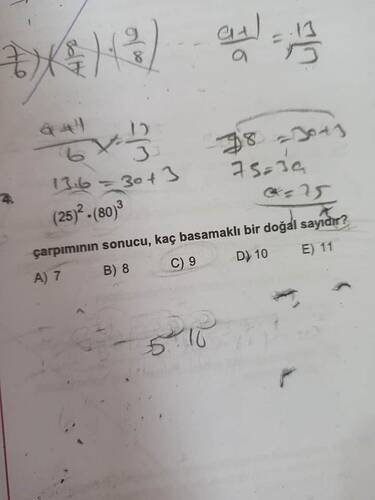 7/6) (8/7) · (9/8)
a+1/a = 13/3
a+1/6 = 13/3
78 = 3a+3
13.6 = 3a+3
75 = 3a
a = 25
(25)² · (80)³
çarpımının sonucu, kaç basamaklı bir doğal sayıdır?
A) 7 B) 8 C) 9 D) 10 E) 11